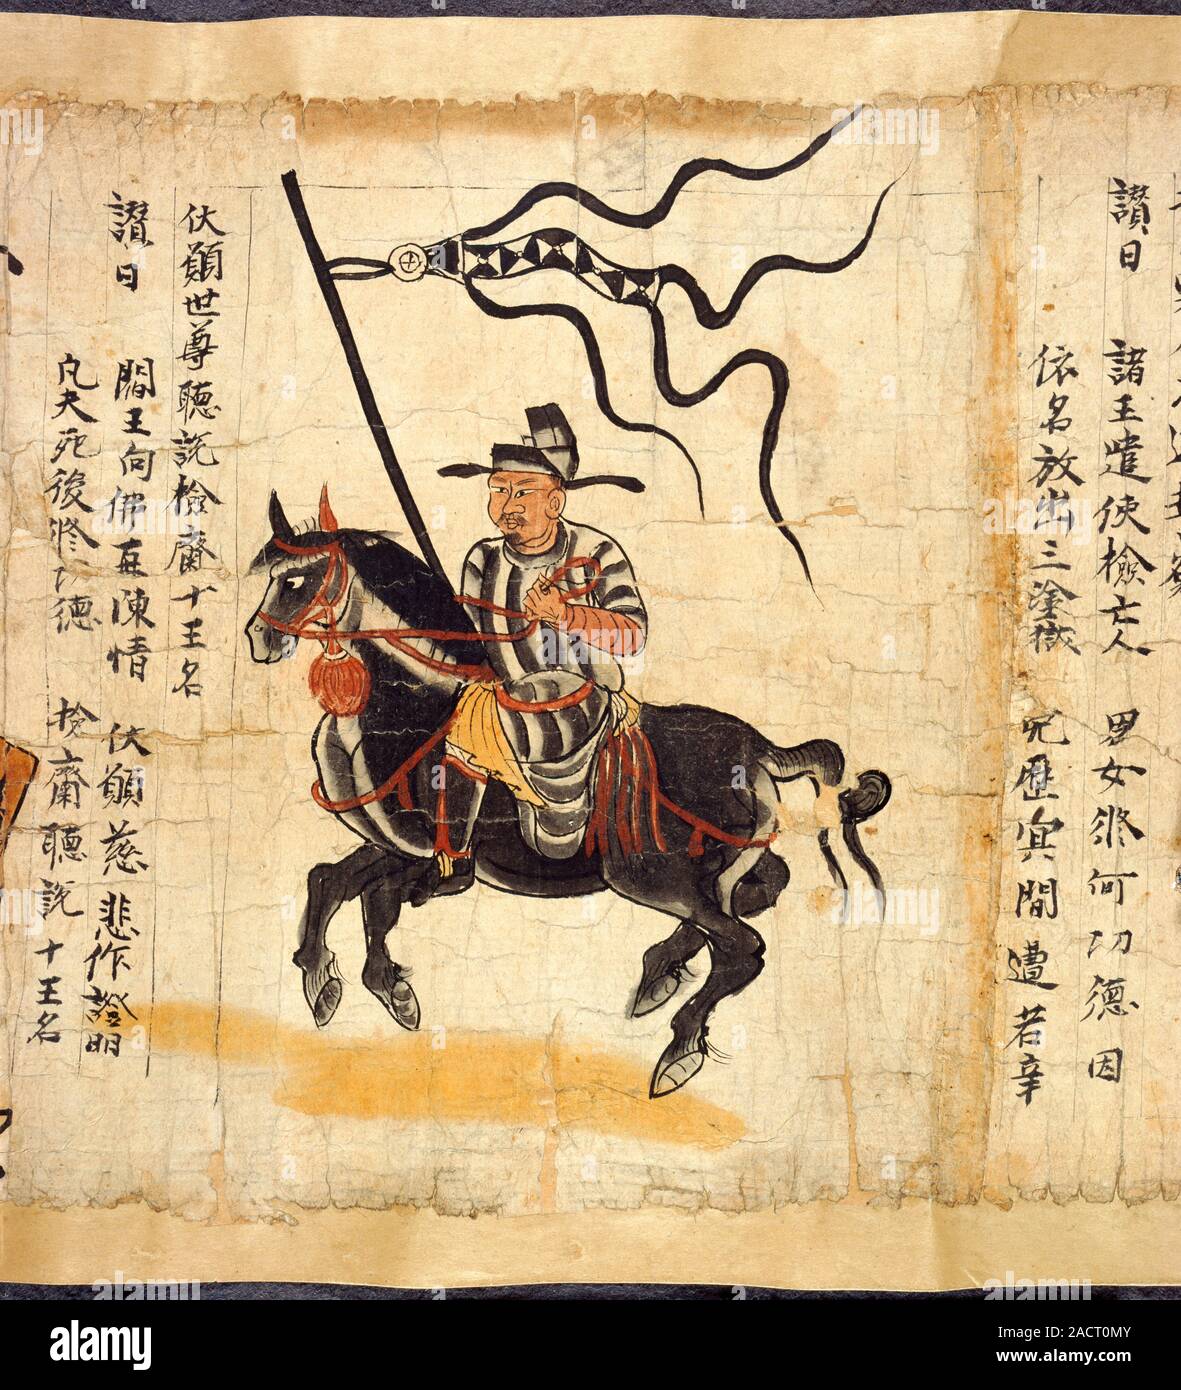 讃曰 諸王遣使檢亡人 男女修何功德因
依名放出三塗獄 免歷冥間遭苦辛
伏願世尊聽說檢齋十王名
讃曰 閻王向佛再陳情 伏願慈悲作證明
凡夫死後修功德 檢齋聽說十王名
alamy
Image ID: 2ACT0MY
www.alamy.com